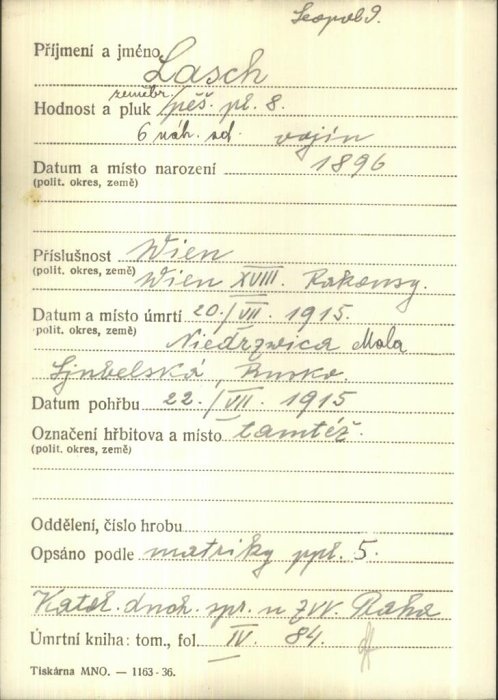 Leopold.
Příjmení a jméno Lasch
zeměbr.
Hodnost a pluk pěš. pl. 8.
6 náh. od. vojín
Datum a místo narození 1896
(polit. okres, země)
Příslušnost Wien
(polit. okres, země) Wien XVIII. Rakousy.
Datum a místo úmrtí 20./VII. 1915.
polit. okres, země) Niedrzwica Mala
Ljubelská, Rusko.
Datum pohřbu 22./VII. 1915
Označení hřbitova a místo tamtéž.
(polit. okres, země)
Oddělení, číslo hrobu
Opsáno podle matriky ppl. 5.
Katol. duch. spr. u ZVV. Praha
Úmrtní kniha: tom., fol. IV. 84.
Tiskárna MNO. — 1163-36.